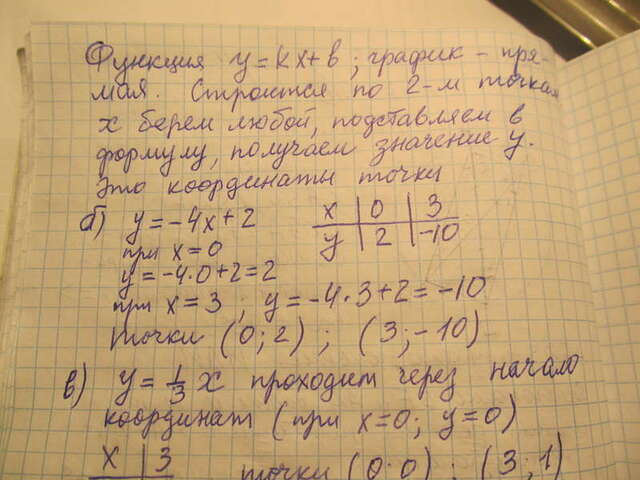 Функция y=kx+b; график – пря-
мая. Строится по 2-м точкам
x берем любой, подставляем в
формулу, получаем значение y.
Это координаты точки
б) y=-4x+2
x | 0 | 3
y | 2 | -10
при x=0
y=-4·0+2=2
при x=3; y=-4·3+2=-10
точки (0;2); (3;-10)
в) y=1/3 x проходит через начало
координат (при x=0; y=0)
x | 3
точки (0;0); (3;1)